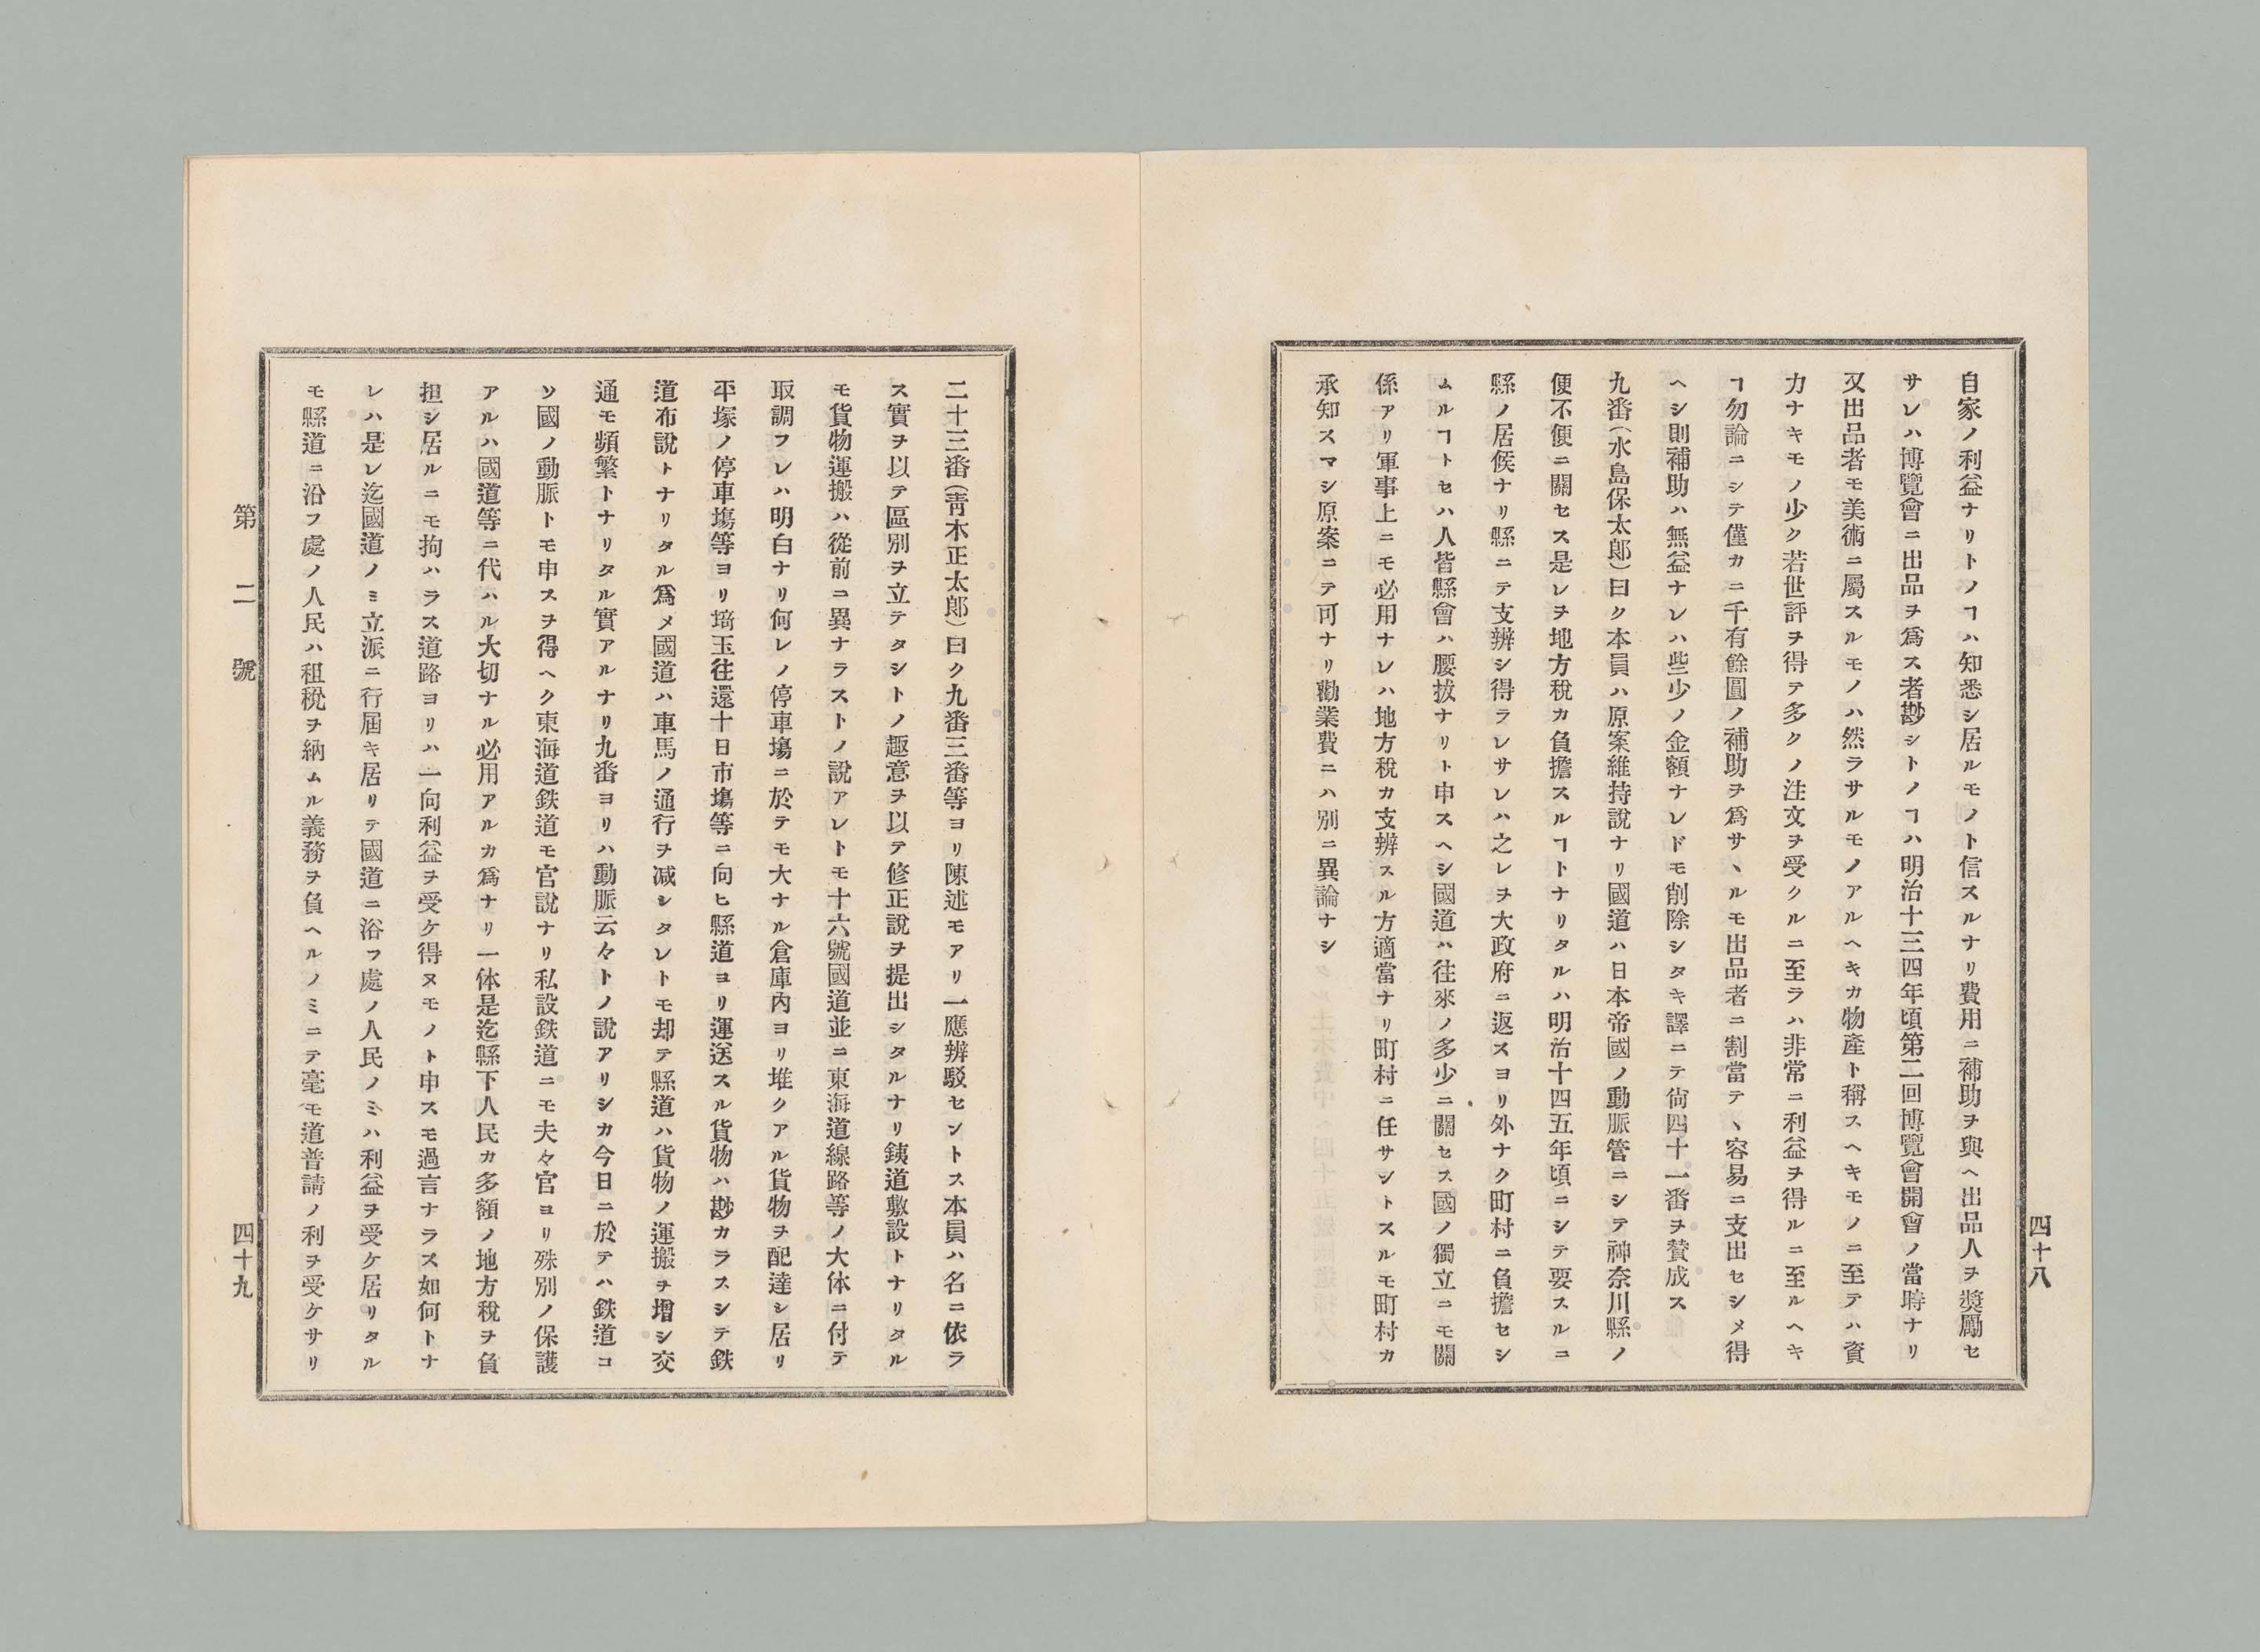 四十八
自家ノ利益ナリトノヿハ知悉シ居ルモノト信スルナリ費用ニ補助ヲ與ヘ出品人ヲ奬勵セ
サレハ博覽會ニ出品ヲ爲ス者尠シトノヿハ明治十三四年頃第二回博覽會開會ノ當時ナリ
又出品者モ美術ニ屬スルモノハ然ラサルモノアルヘキカ物產ト稱スヘキモノニ至テハ資
力ナキモノ少ク若世評ヲ得テ多クノ注文ヲ受クルニ至ラハ非常ニ利益ヲ得ルニ至ルヘキ
ヿ勿論ニシテ僅カニ千有餘圓ノ補助ヲ爲サヽルモ出品者ニ割當テヽ容易ニ支出セシメ得
ヘシ則補助ハ無益ナレハ些少ノ金額ナレドモ削除シタキ譯ニテ尙四十一番ヲ賛成ス
九番(水島保太郞)曰ク本員ハ原案維持說ナリ國道ハ日本帝國ノ動脈管ニシテ神奈川縣ノ
便不便ニ關セス是レヲ地方稅カ負擔スルヿトナリタルハ明治十四五年頃ニシテ要スルニ
縣ノ居候ナリ縣ニテ支辨シ得ラレサレハ之レヲ大政府ニ返スヨリ外ナク町村ニ負擔セシ
ムルヿトセハ人皆縣會ハ腰拔ナリト申スヘシ國道ハ往來ノ多少ニ關セス國ノ獨立ニモ關
係アリ軍事上ニモ必用ナレハ地方稅カ支辨スル方適當ナリ町村ニ任サントスルモ町村カ
承知スマシ原案ニテ可ナリ勸業費ニハ別ニ異論ナシ
二十三番(靑木正太郞)曰ク九番三番等ヨリ陳述モアリ一應辨駁セントス本員ハ名ニ依ラ
ス實ヲ以テ區別ヲ立テタシトノ趣意ヲ以テ修正說ヲ提出シタルナリ銕道敷設トナリタル
モ貨物運搬ハ從前ニ異ナラストノ說アレトモ十六號國道並ニ東海道線路等ノ大体ニ付テ
取調フレハ明白ナリ何レノ停車塲ニ於テモ大ナル倉庫內ヨリ堆クアル貨物ヲ配達シ居リ
平塚ノ停車塲等ヨリ埼玉往還十日市塲等ニ向ヒ縣道ヨリ運送スル貨物ハ尠カラスシテ鉄
道布說トナリタル爲メ國道ハ車馬ノ通行ヲ减シタレトモ却テ縣道ハ貨物ノ運搬ヲ增シ交
通モ頻繁トナリタル實アルナリ九番ヨリハ動脈云々トノ說アリシカ今日ニ於テハ鉄道コ
ソ國ノ動脈トモ申スヲ得ヘク東海道鉄道モ官說ナリ私設鉄道ニモ夫々官ヨリ殊別ノ保護
アルハ國道等ニ代ハル大切ナル必用アルカ爲ナリ一体是迄縣下人民カ多額ノ地方稅ヲ負
担シ居ルニモ拘ハラス道路ヨリハ一向利益ヲ受ケ得ヌモノト申スモ過言ナラス如何トナ
レハ是レ迄國道ノミ立派ニ行屆キ居リテ國道ニ浴フ處ノ人民ノミハ利益ヲ受ケ居リタル
モ縣道ニ沿フ處ノ人民ハ租稅ヲ納ムル義務ヲ負ヘルノミニテ毫モ道普請ノ利ヲ受ケサリ
第二號
四十九